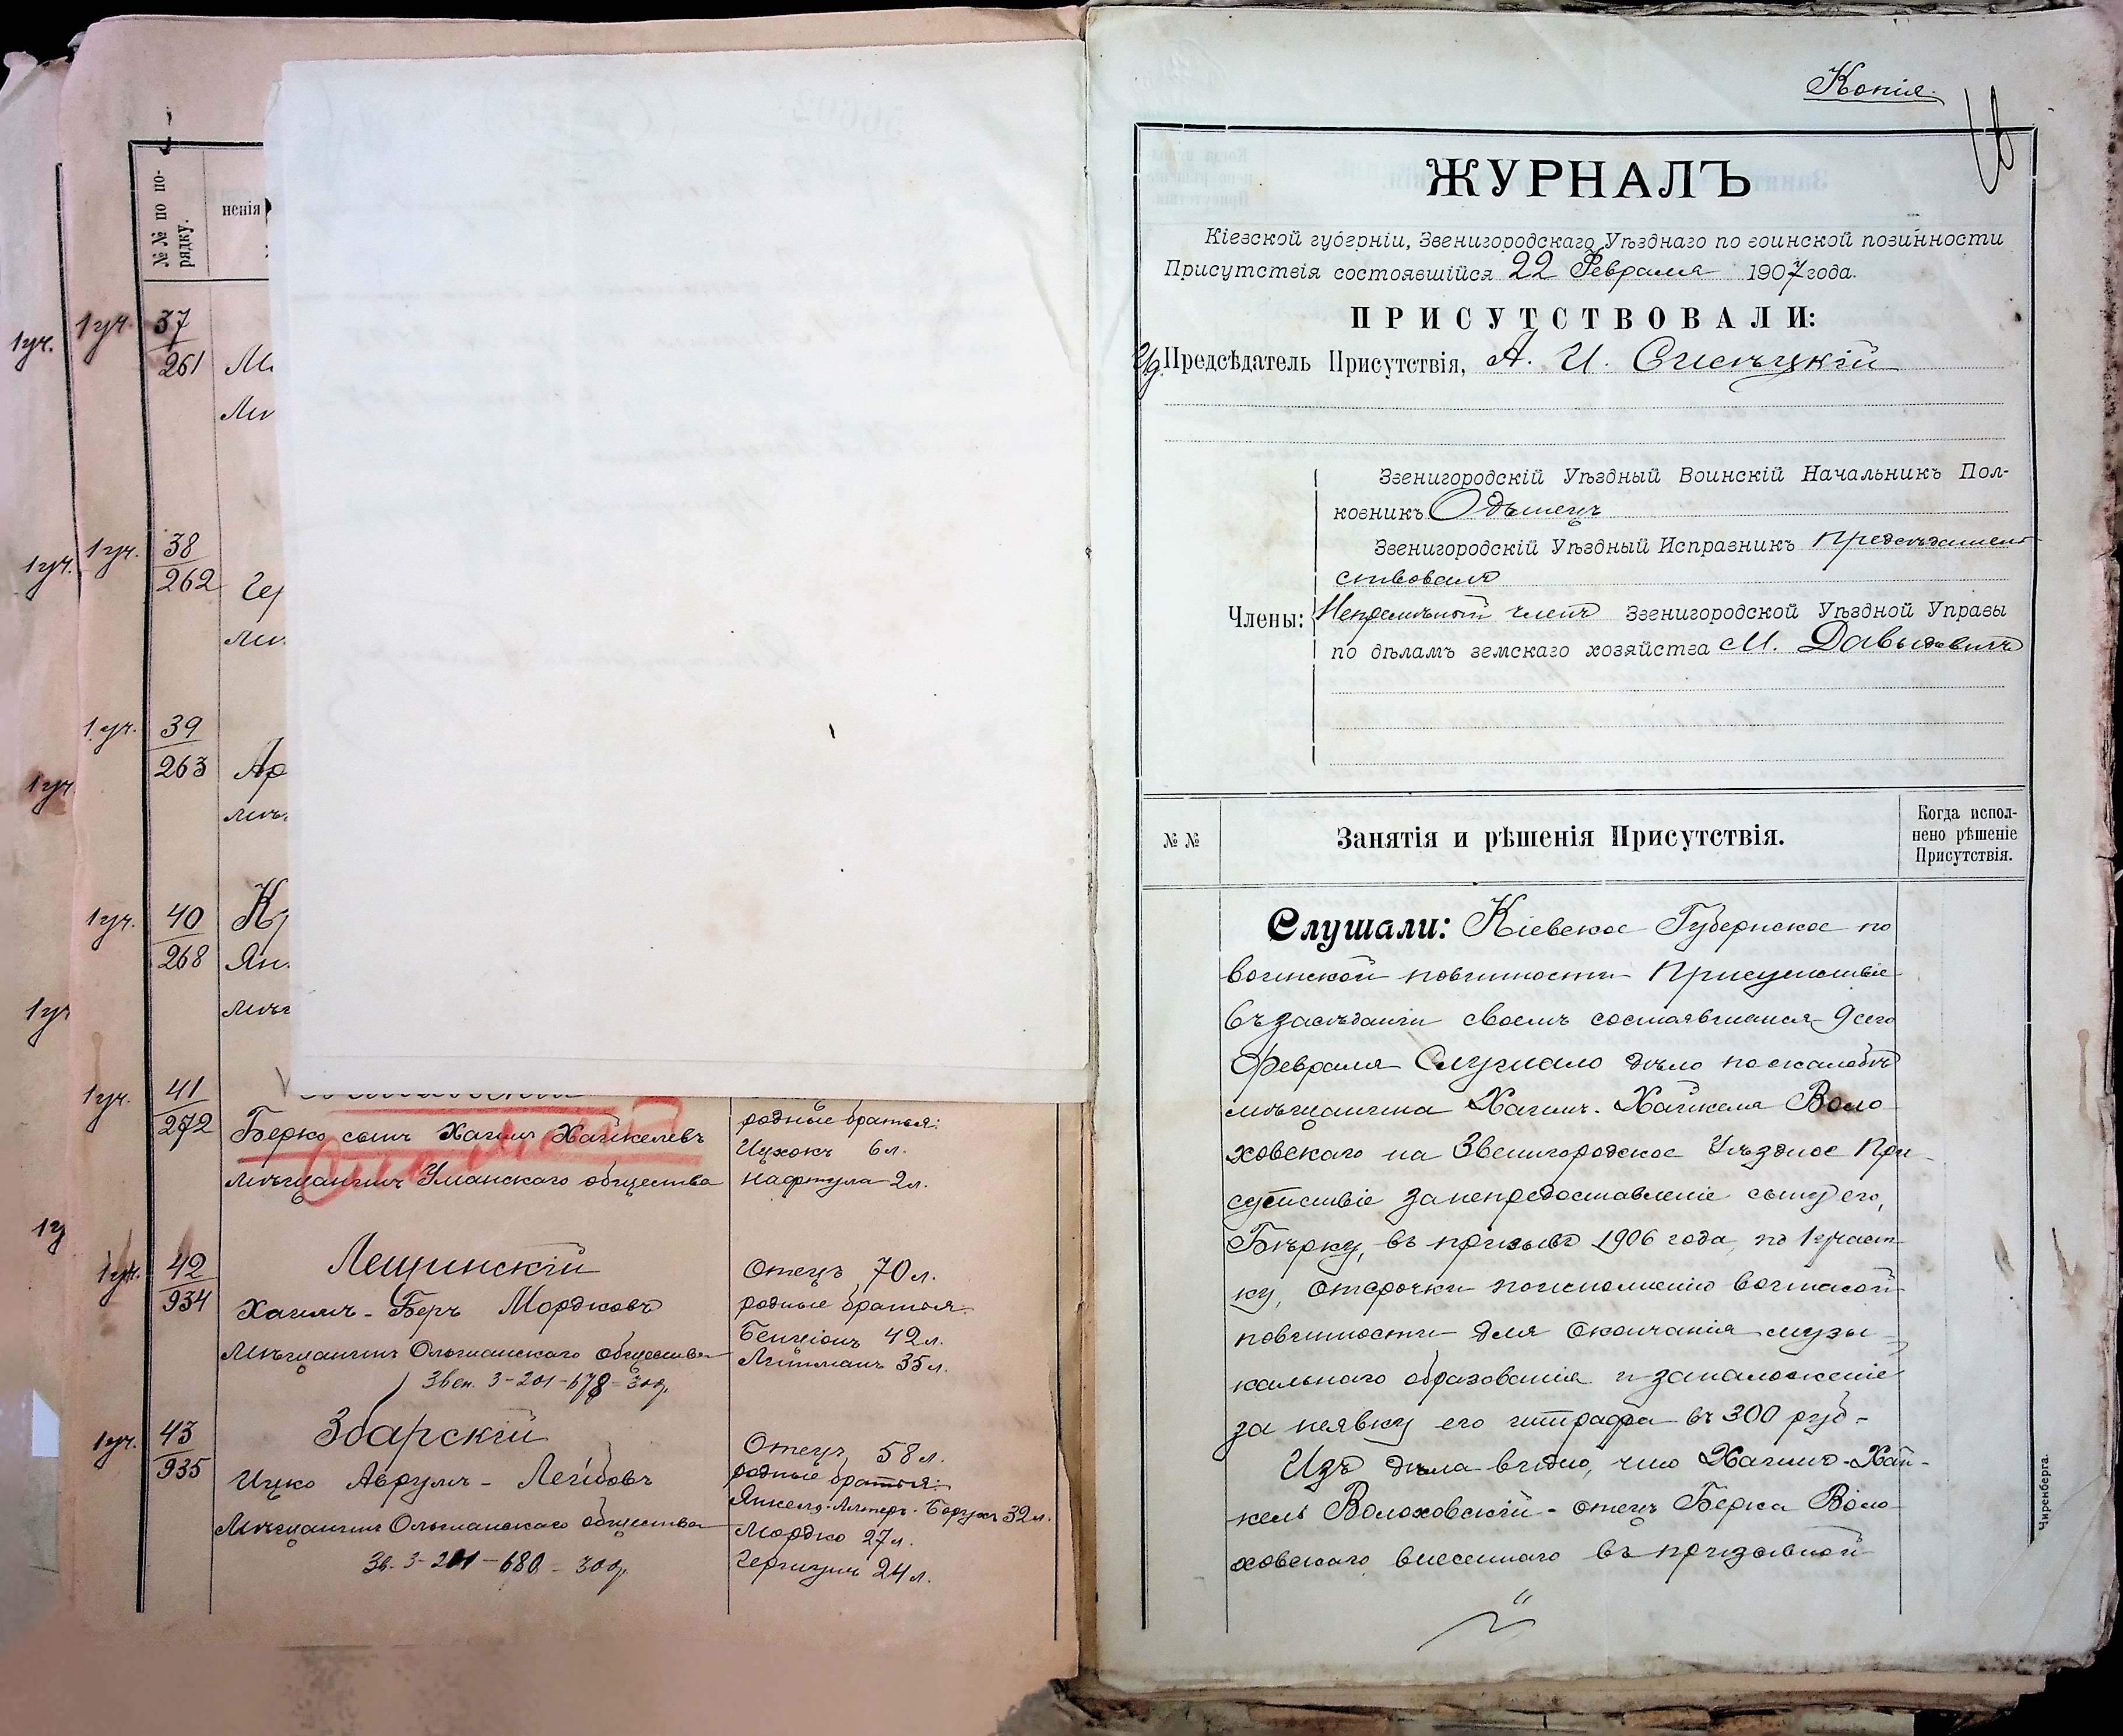 № № по по-
рядку.
ненія
1 уч.
1 уч.
37
261
1 уч.
1 уч.
38
262
1 уч.
39
263
1 уч.
1 уч.
40
268
1 уч
1 уч.
41
272
Берко сынъ Хаимъ Хайкелевъ
мѣщанинъ Уманскаго общества
родные братья:
Ицхокъ 6 л.
Нафтула 2 л.
1 у
1 уч.
42
934
Лещинскій
Хаимъ-Беръ Мордковъ
Мѣщанинъ Ольшанскаго общества
Звен. 3-201-678-300р.
Отецъ 70 л.
родные братья:
Бенціонъ 42 л.
Литманъ 35 л.
1 уч.
43
935
Збарскій
Ицко Аврумъ-Лейбовъ
Мѣщанинъ Ольшанскаго общества
Зв. 3-201-680-300р.
Отецъ 58 л.
родные братья:
Янкель-Алтеръ-Борухъ 32 л.
Мордко 27 л.
Гершунъ 24 л.
Копія.
ЖУРНАЛЪ
Кіевской губерніи, Звенигородскаго Уѣзднаго по воинской повинности
Присутствія состоявшійся 22 Февраля 1907 года.
ПРИСУТСТВОВАЛИ:
И.д. Предсѣдатель Присутствія, А. И.
Звенигородскій Уѣздный Воинскій Начальникъ Пол-
ковникъ Одынецъ
Звенигородскій Уѣздный Исправникъ предсѣдатель
ствовалъ
Члены: Непремѣнный членъ Звенигородской Уѣздной Управы
по дѣламъ земскаго хозяйства М. Давыдовичъ
№ №
Занятія и рѣшенія Присутствія.
Когда испол-
нено рѣшеніе
Присутствія.
Слушали: Кіевское Губернское по
воинской повинности Присутствіе
въ засѣданіи своемъ состоявшемся 9 сего
Февраля Слушало дѣло по жалобѣ
мѣщанина Хаимъ-Хайкеля Воло
ховскаго на Звенигородское Уѣздное При
сутствіе за непредоставленіе сыну его,
Бѣрку, въ призывъ 1906 года, по 1 участ
ку, отсрочки по исполненію воинской
повинности для окончанія музы-
кальнаго образованія и за наложеніе
за неявку его штрафа въ 300 руб-
Изъ дѣла видно, что Хаимъ-Хай-
кель Волоховскій-отецъ Берка Воло
ховскаго внесеннаго въ призывной
Чиренберга.